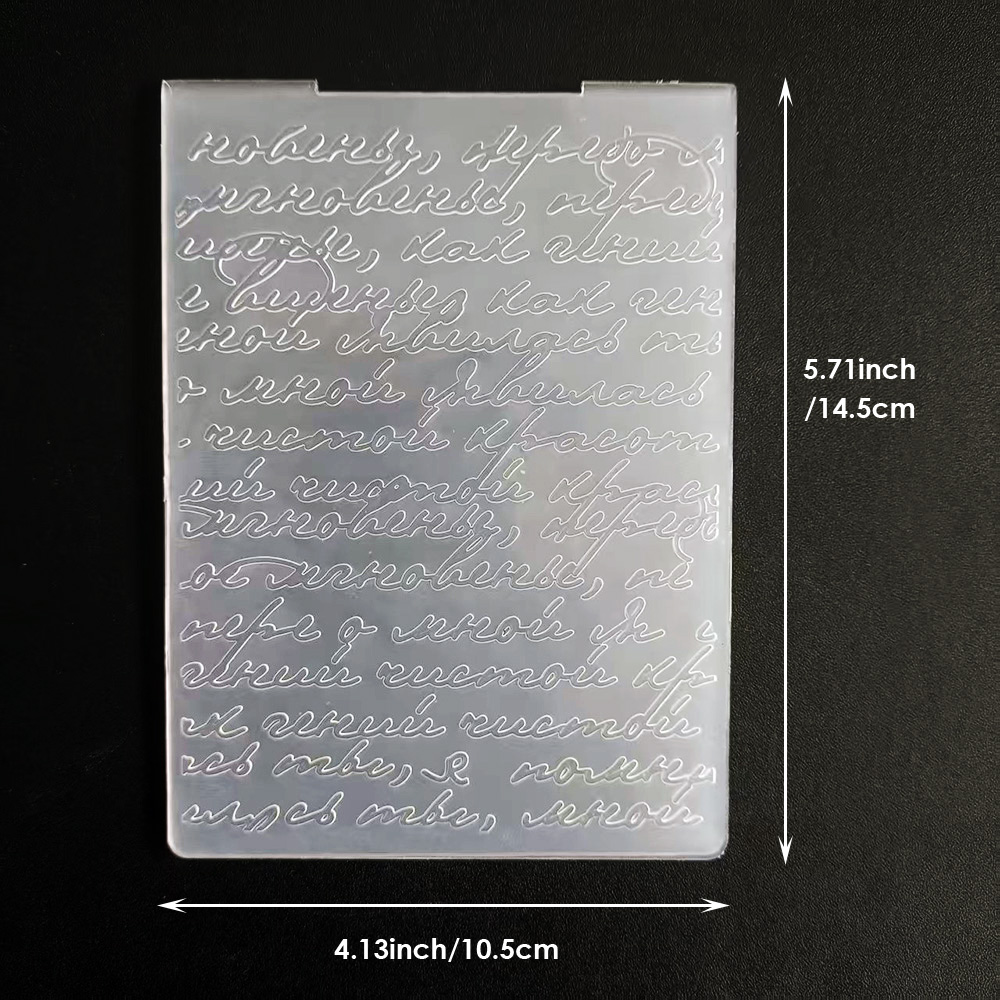 новенья, передо
мгновенье, перед
как гений
виденья как ген
мной явилась ты
мной явилась
чистой красот
чистой крас
мгновенья, передо
мгновенье,
мной
гений чистой кр
гений чистой
ты, я помн
ты, мной
5.71inch
/14.5cm
4.13inch/10.5cm